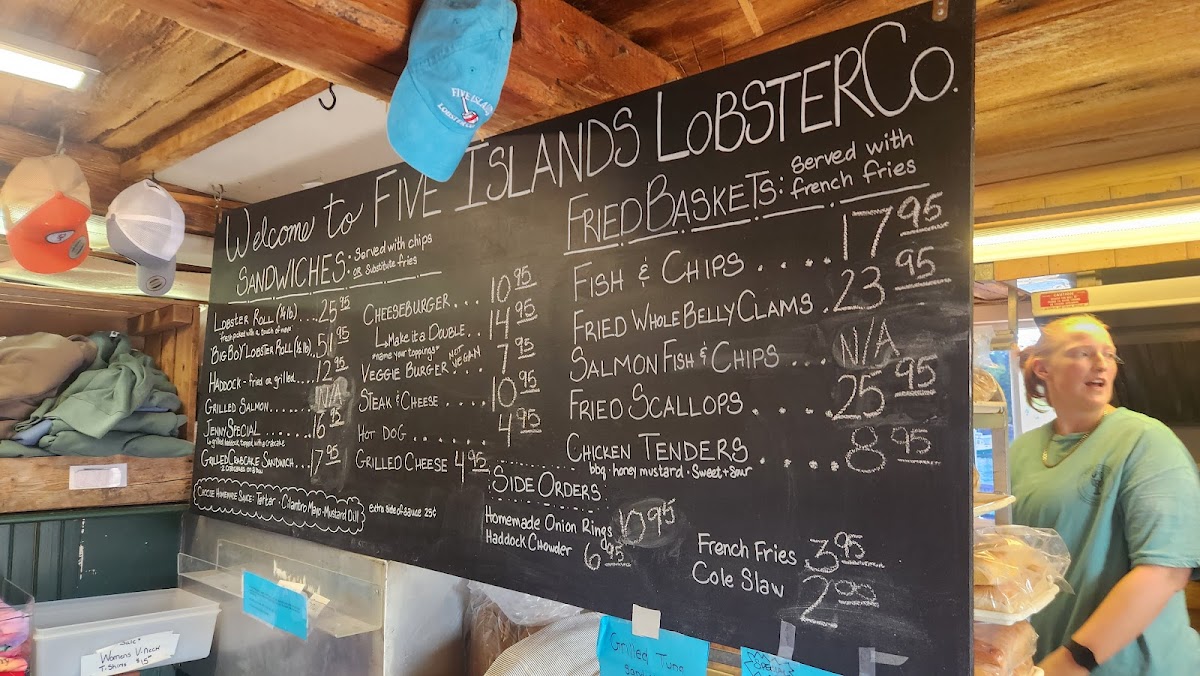 Welcome to FIVE ISLANDS LOBSTER CO.
SANDWICHES: Served with chips
or Substitute fries
LOBSTER ROLL (1/4 lb) .... 25 95
*fresh picked with a touch of mayo*
"BIG BOY" LOBSTER ROLL (1/2 lb) .. 51 95
HADDOCK - fried or grilled .... 12 95
GRILLED SALMON ...... N/A
JENNY SPECIAL ...... 16 95
GRILLED CRABCAKE SANDWICH ... 17 95
2 CRABCAKES ON A BUN
CHOOSE HOMEMADE SAUCE: Tarter · Cilantro Mayo · Mustard Dill
extra side of sauce 25¢
CHEESEBURGER ... 10 95
Make it a DOUBLE ... 14 95
"name your toppings"
VEGGIE BURGER NOT VEGAN ... 7 95
STEAK & CHEESE .... 10 95
HOT DOG ...... 4 95
GRILLED CHEESE 4 95
FRIED BASKETS: Served with
french fries
FISH & CHIPS .... 17 95
FRIED WHOLE BELLY CLAMS . 23 95
SALMON FISH & CHIPS ... N/A
FRIED SCALLOPS ..... 25 95
CHICKEN TENDERS .... 8 95
bbq · honey mustard · Sweet + Sour
SIDE ORDERS
Homemade Onion Rings 10 95
Haddock Chowder 6 95
French Fries 3 95
Cole Slaw 2 00
FIVE ISLANDS
LOBSTER CO.
Sale*
Womens V-Neck
T-Shirts $15
Grilled Tuna
CAUTION